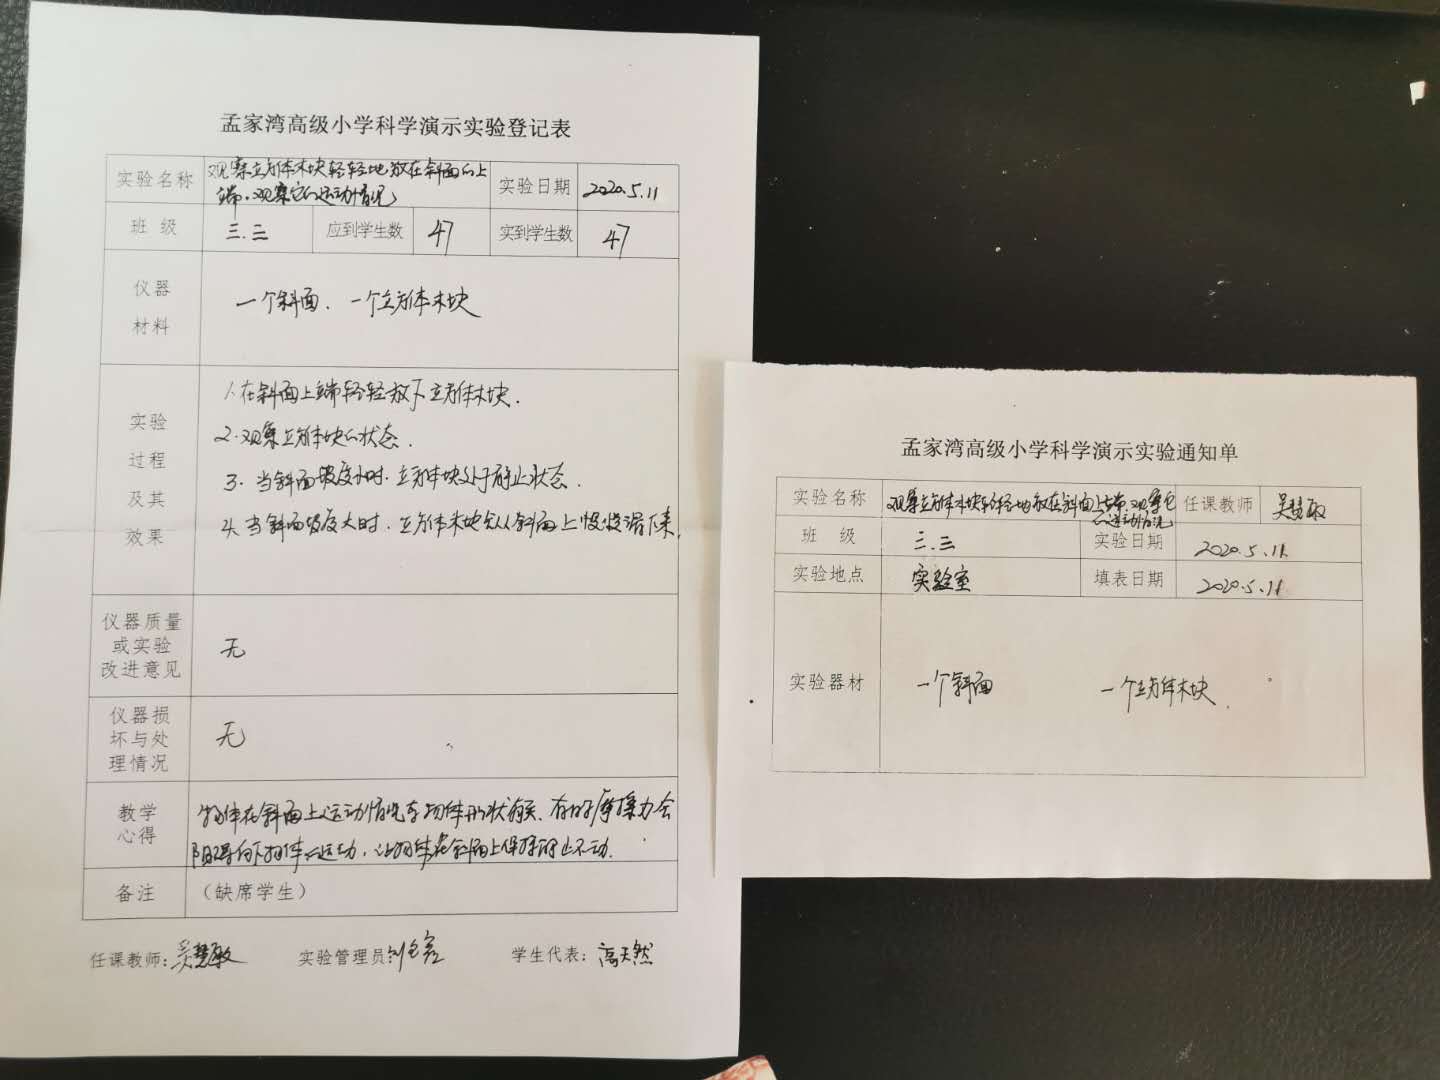 孟家湾高级小学科学演示实验登记表
实验名称 观察立方体木块轻轻地放在斜面的上 实验日期 2020.5.11
端,观察它的运动情况
班 级 三.三 应到学生数 47 实到学生数 47
仪器
材料
一个斜面、一个立方体木块
实验
过程
及其
效果
1.在斜面上端轻轻放下立方体木块.
2.观察立方体块的状态.
3.当斜面坡度小时.立方体块处于静止状态.
4.当斜面坡度大时.立方体木块会从斜面上慢慢滑下来.
仪器质量
或实验
改进意见
无
仪器损
坏与处
理情况
无
教学
心得
物体在斜面上运动情况与物体形状有关.有时摩擦力会
阻碍向下物体的运动,让物体在斜面上保持静止不动.
备注 (缺席学生)
任课教师:吴慧敏 实验管理员 学生代表:高天然
孟家湾高级小学科学演示实验通知单
实验名称 观察立方体木块轻轻地放在斜面上端,观察它 任课教师 吴慧敏
的运动情况
班 级 三.三 实验日期 2020.5.11
实验地点 实验室 填表日期 2020.5.11
实验器材 一个斜面 一个立方体木块.